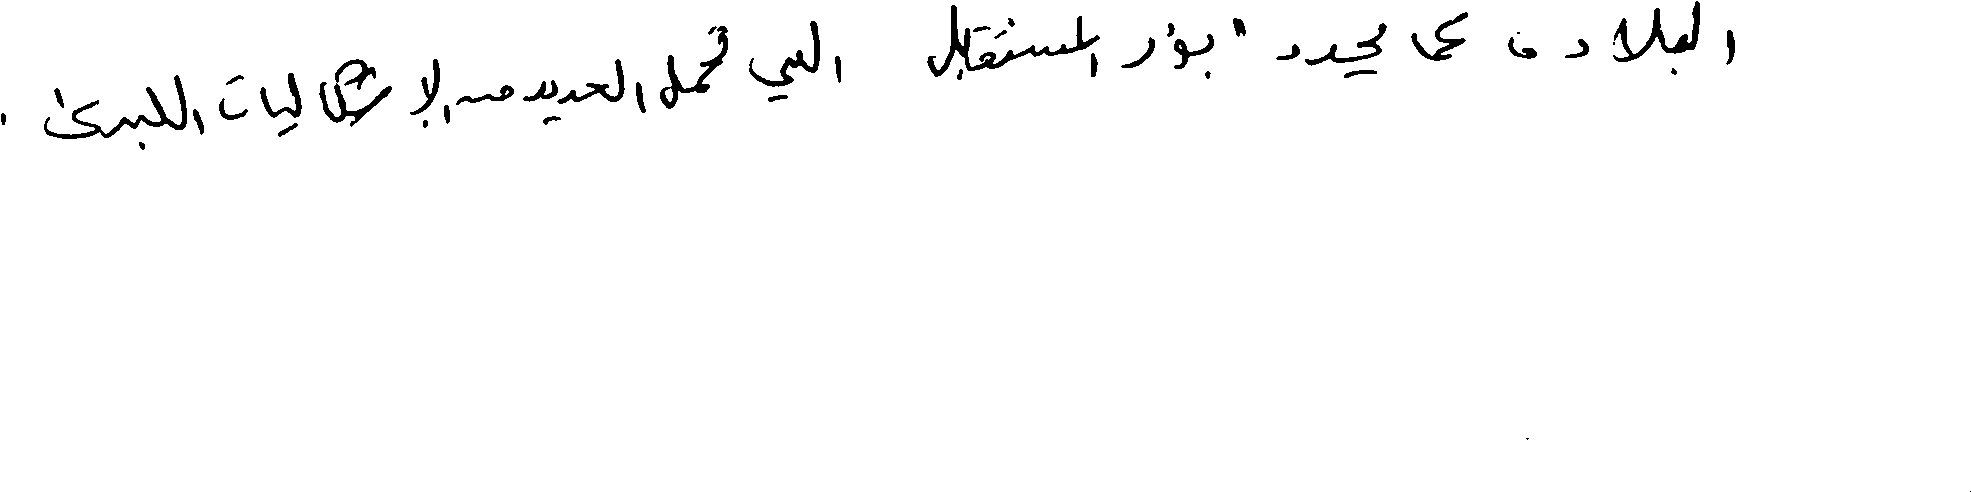 البلاد، كما يحدد "بؤر المستقبل التي تحمل العديد من الإشكاليات الكبرى.